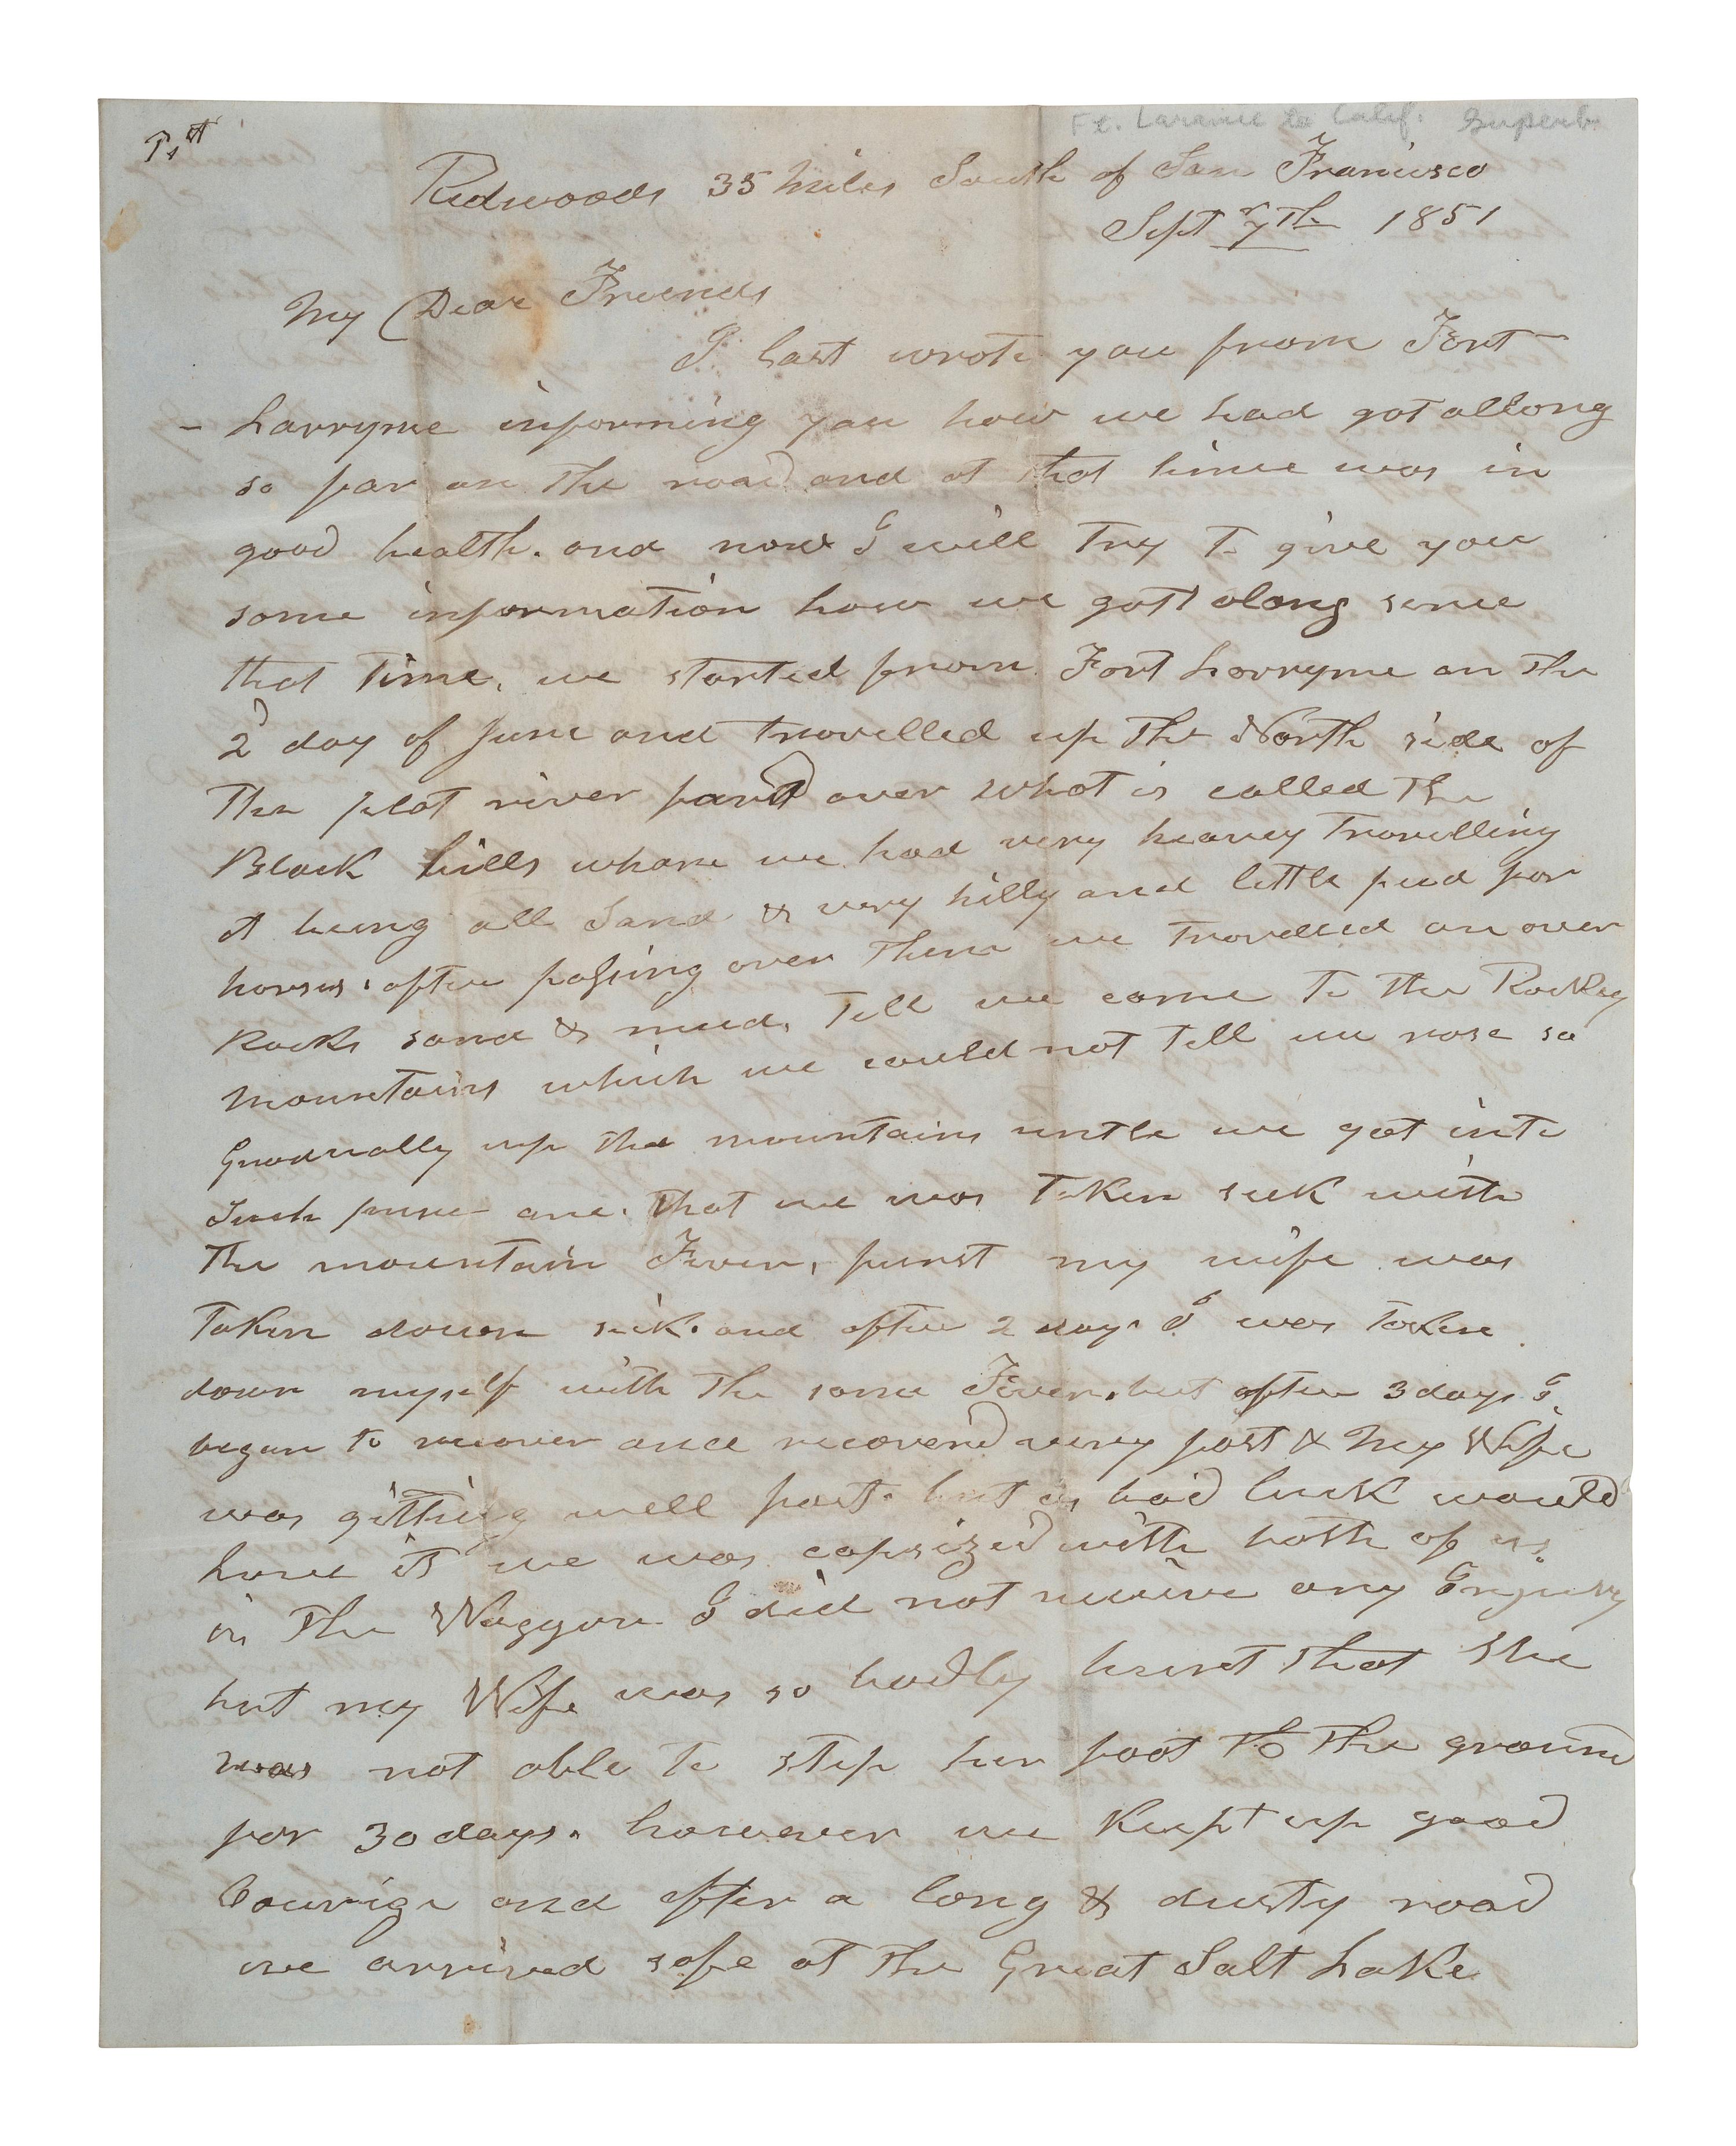 P. 1st
Ft. Laramie to Calif. Superb.
Redwoods 35 Miles South of San Francisco
Sept 7th 1851
My Dear Friends
I last wrote you from Fort
- Larryme informing you how we had got allong
so far on the road and at that time was in
good health. and now I will try to give you
some information how we gott along sence
that time. we started from Fort Larryme on the
2d day of June and travelled up the North side of
the plat river pasd over what is called the
Black hills whare we had very heavey travelling
it being all Sand & very hilly and little feed for
horses. after passing over them we travelled on over
Rocks sand & mud. till we come to the Rockey
Mountains which we could not tell we rose so
Gradually up the mountains untle we got into
Such pure are. that we was taken sick with
the mountain Fever, furst my wife was
taken down sick. and after 2 days I was taken
down myself with the same Fever. but after 3 days I
began to recover and recoverd very fast & My Wife
was gitting well fast. but as bad luck would
have it we was capsized with both of us
in the Waggon I did not receive any Injury
but my Wife was so badly hurt that she
was not able to step her foot to the ground
for 30 days. however we kept up good
Courige and after a long & dusty road
we arrived safe at the Great Salt Lake